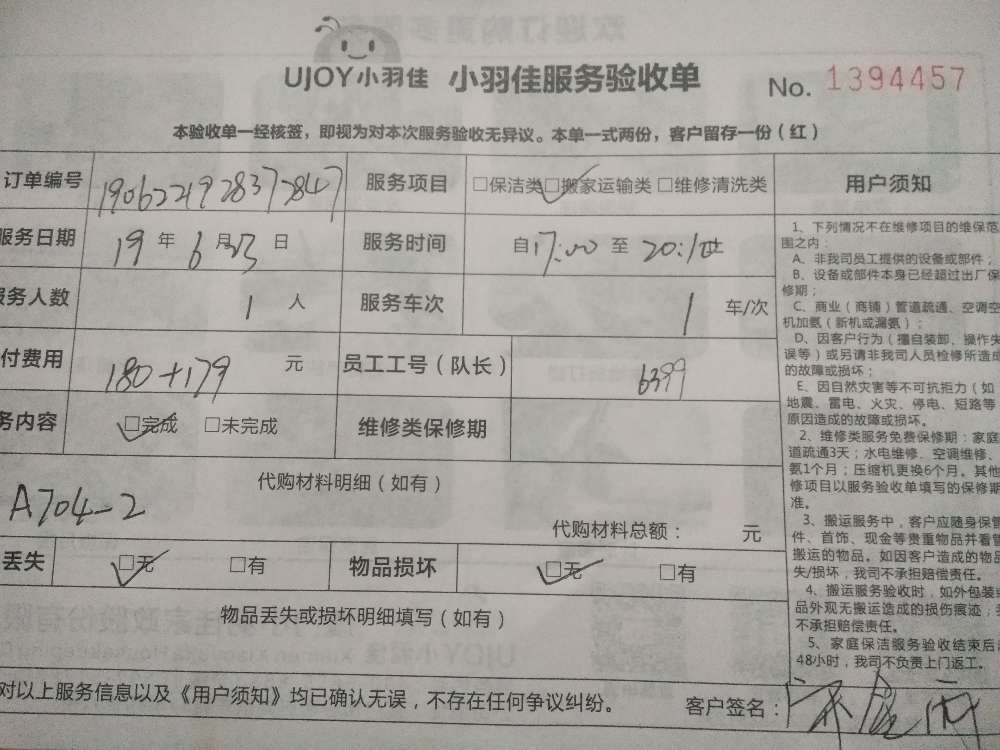 UJOY小羽佳 小羽佳服务验收单 No. 1394457
本验收单一经核签，即视为对本次服务验收无异议。本单一式两份，客户留存一份（红）
订单编号 1906221928372847 服务项目 □保洁类 □搬家运输类 □维修清洗类 用户须知
服务日期 19 年 6 月 23 日 服务时间 自 17:00 至
服务人数 1 人 服务车次 1 车/次
付费用 180+179 元 员工工号（队长） 6399
务内容 □完成 □未完成 维修类保修期
代购材料明细（如有）
A704-2
代购材料总额： 元
丢失 □无 □有 物品损坏 □无 □有
物品丢失或损坏明细填写（如有）
对以上服务信息以及《用户须知》均已确认无误，不存在任何争议纠纷。 客户签名：
1、下列情况不在维修项目的维保范
围之内：
A、非我司员工提供的设备或部件；
B、设备或部件本身已经超过出厂保
修期；
C、商业（商铺）管道疏通、空调空
机加氨（新机或漏氨）；
D、因客户行为（擅自装卸、操作失
误等）或另请非我司人员检修所造成
的故障或损坏；
E、因自然灾害等不可抗拒力（如
地震、雷电、火灾、停电、短路等
原因造成的故障或损坏。
2、维修类服务免费保修期：家庭
道疏通3天；水电维修、空调维修、
氨1个月；压缩机更换6个月。其他
修项目以服务验收单填写的保修期
准。
3、搬运服务中，客户应随身保管
件、首饰、现金等贵重物品并看管
搬运的物品。如因客户造成的物品
失/损坏，我司不承担赔偿责任。
4、搬运服务验收时，如外包装
品外观无搬运造成的损伤痕迹，
不承担赔偿责任。
5、家庭保洁服务验收结束后
48小时，我司不负责上门返工。